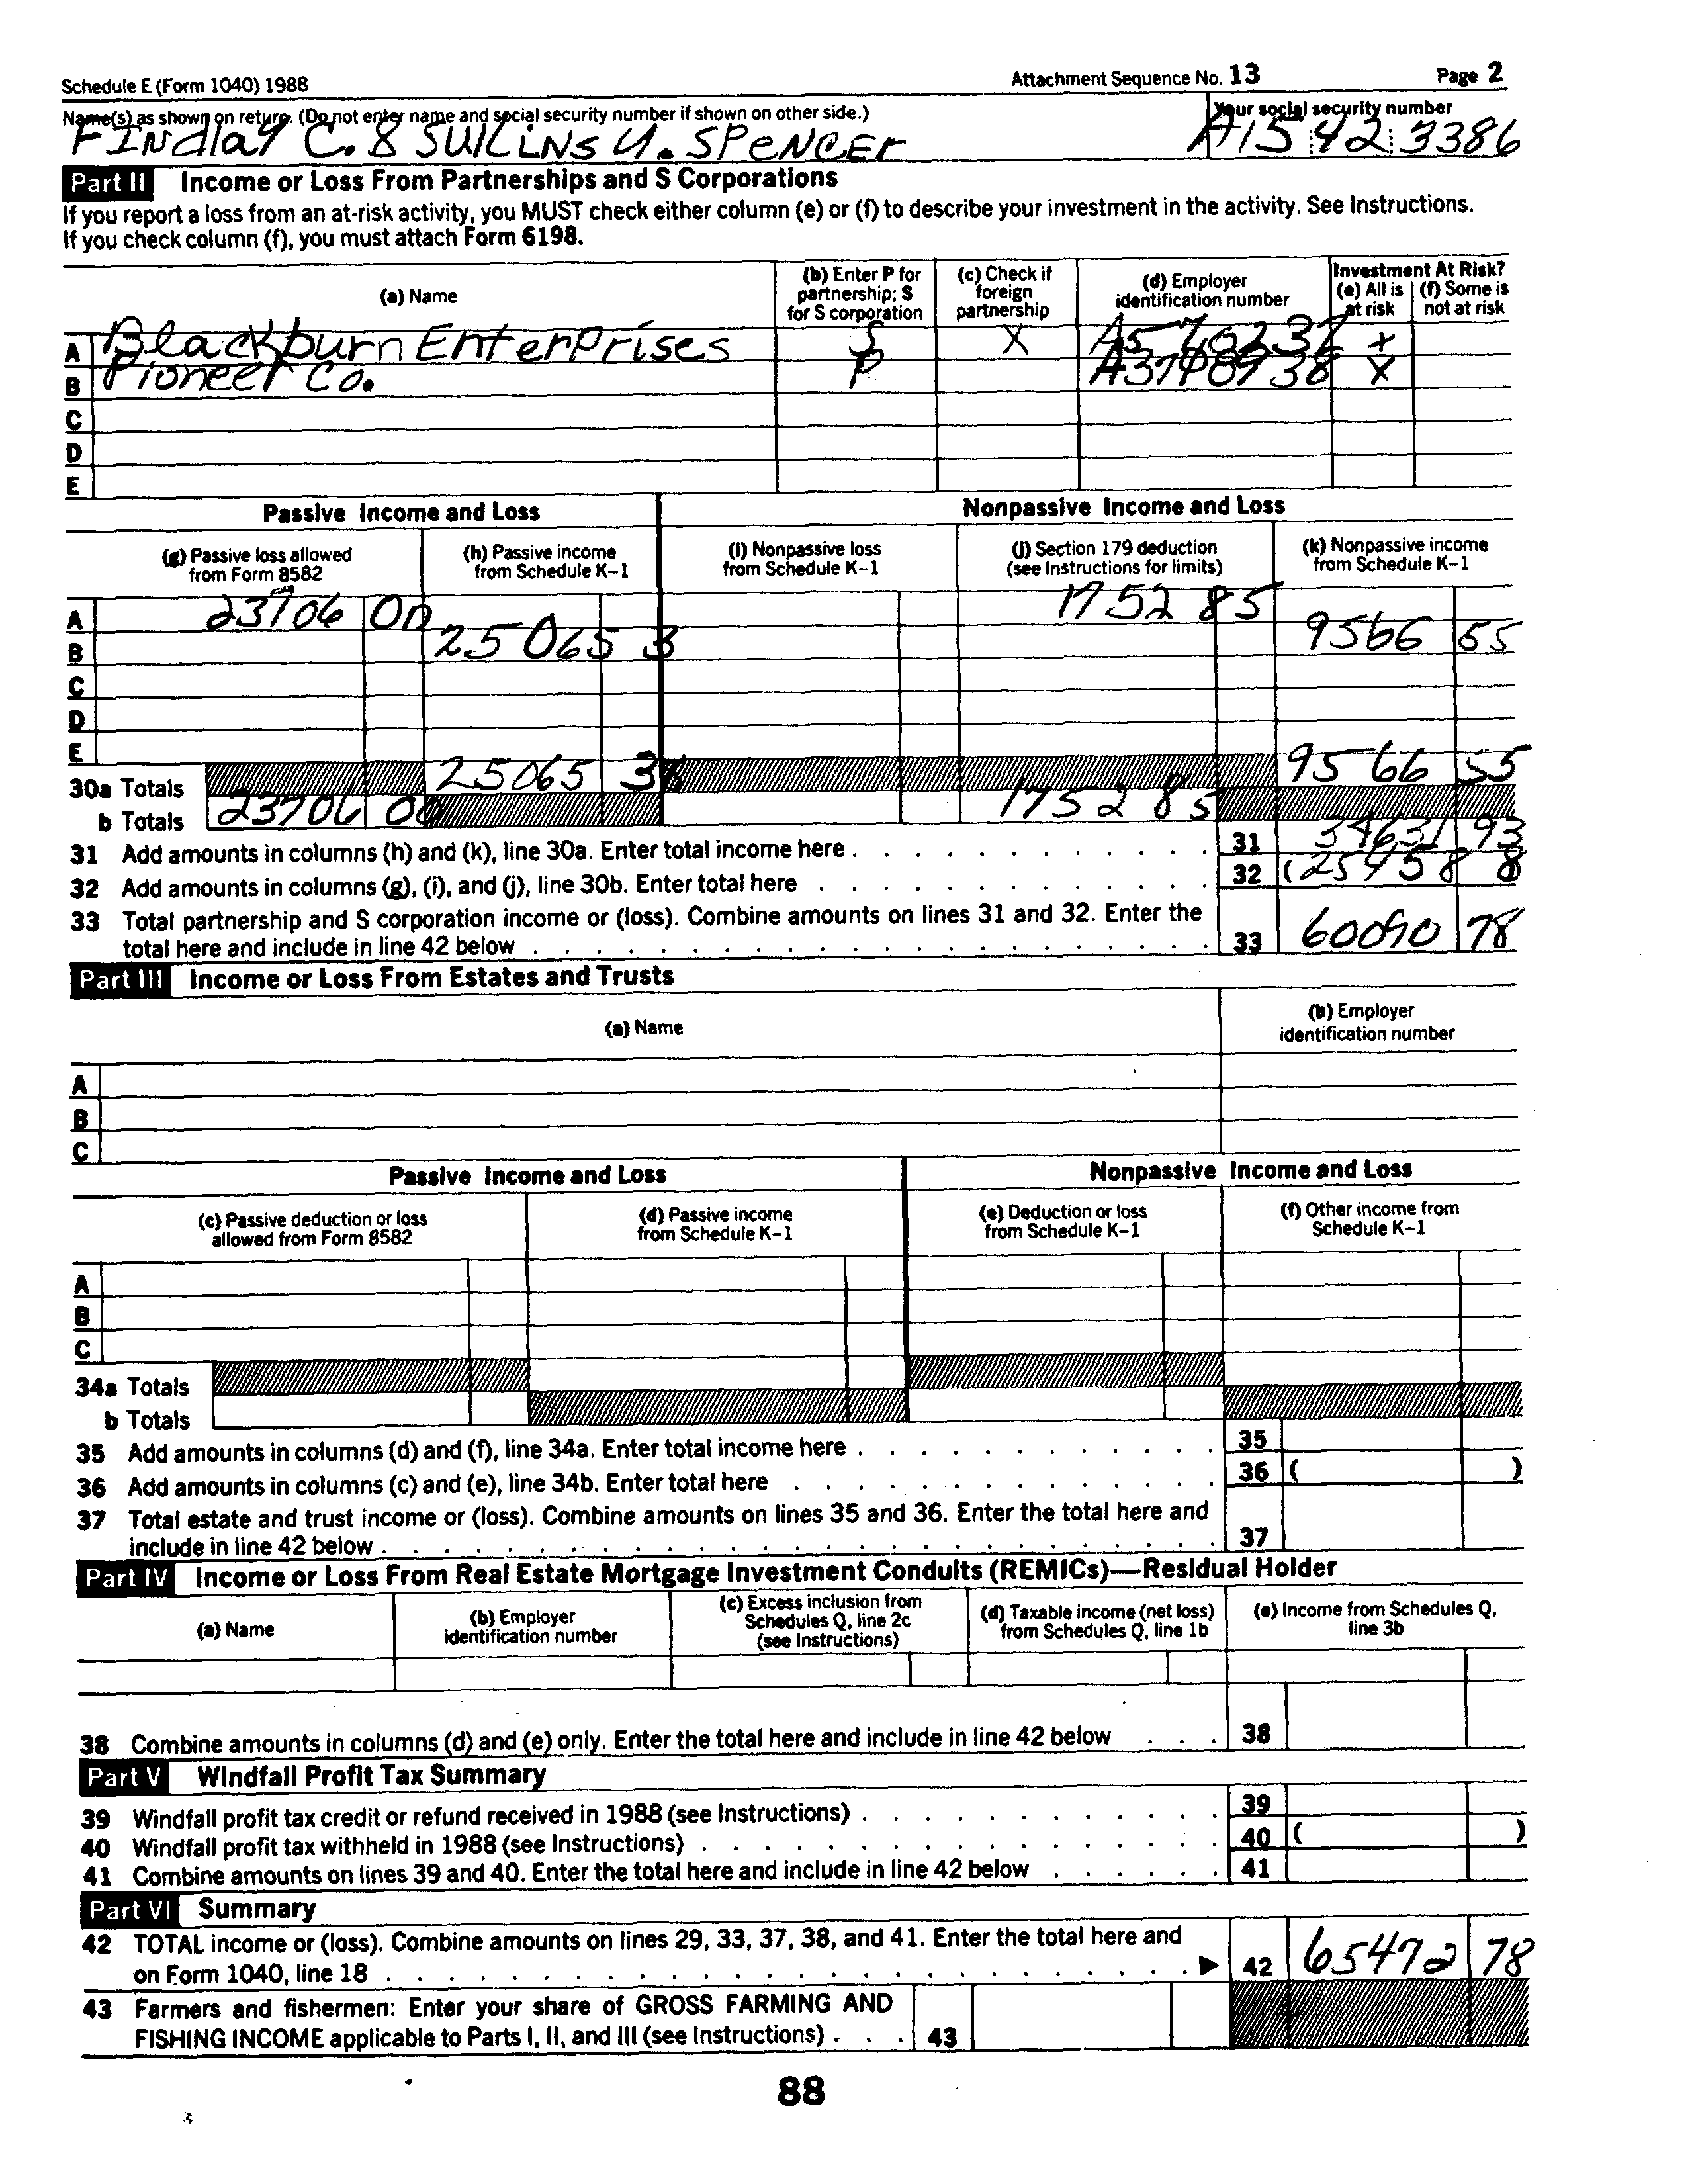 Schedule E (Form 1040) 1988 Attachment Sequence No. 13 Page 2
Name(s) as shown on return. (Do not enter name and social security number if shown on other side.) Your social security number
Findlay C. & Sullins U. Spencer A15 42 3386
Part II Income or Loss From Partnerships and S Corporations
If you report a loss from an at-risk activity, you MUST check either column (e) or (f) to describe your investment in the activity. See Instructions.
If you check column (f), you must attach Form 6198.
(a) Name
(b) Enter P for partnership; S for S corporation
(c) Check if foreign partnership
(d) Employer identification number
Investment At Risk?
(e) All is at risk
(f) Some is not at risk
A Blackburn Enterprises S X X
B Pioneer Co. P X
C
D
E
Passive Income and Loss Nonpassive Income and Loss
(g) Passive loss allowed from Form 8582
(h) Passive income from Schedule K-1
(i) Nonpassive loss from Schedule K-1
(j) Section 179 deduction (see Instructions for limits)
(k) Nonpassive income from Schedule K-1
A 23706 00 1752 85
B 25065 3 9566 55
C
D
E
30a Totals 25065 38 9566 55
b Totals 23706 00 1752 85
31 Add amounts in columns (h) and (k), line 30a. Enter total income here 31 34631 93
32 Add amounts in columns (g), (i), and (j), line 30b. Enter total here 32 (25458 8
33 Total partnership and S corporation income or (loss). Combine amounts on lines 31 and 32. Enter the
total here and include in line 42 below 33 60090 78
Part III Income or Loss From Estates and Trusts
(a) Name
(b) Employer identification number
A
B
C
Passive Income and Loss Nonpassive Income and Loss
(c) Passive deduction or loss allowed from Form 8582
(d) Passive income from Schedule K-1
(e) Deduction or loss from Schedule K-1
(f) Other income from Schedule K-1
A
B
C
34a Totals
b Totals
35 Add amounts in columns (d) and (f), line 34a. Enter total income here 35
36 Add amounts in columns (c) and (e), line 34b. Enter total here 36 ( )
37 Total estate and trust income or (loss). Combine amounts on lines 35 and 36. Enter the total here and
include in line 42 below 37
Part IV Income or Loss From Real Estate Mortgage Investment Conduits (REMICs)—Residual Holder
(a) Name
(b) Employer identification number
(c) Excess inclusion from Schedules Q, line 2c (see Instructions)
(d) Taxable income (net loss) from Schedules Q, line 1b
(e) Income from Schedules Q, line 3b
38 Combine amounts in columns (d) and (e) only. Enter the total here and include in line 42 below 38
Part V Windfall Profit Tax Summary
39 Windfall profit tax credit or refund received in 1988 (see Instructions) 39
40 Windfall profit tax withheld in 1988 (see Instructions) 40 ( )
41 Combine amounts on lines 39 and 40. Enter the total here and include in line 42 below 41
Part VI Summary
42 TOTAL income or (loss). Combine amounts on lines 29, 33, 37, 38, and 41. Enter the total here and
on Form 1040, line 18 42 65472 78
43 Farmers and fishermen: Enter your share of GROSS FARMING AND
FISHING INCOME applicable to Parts I, II, and III (see Instructions) 43
88